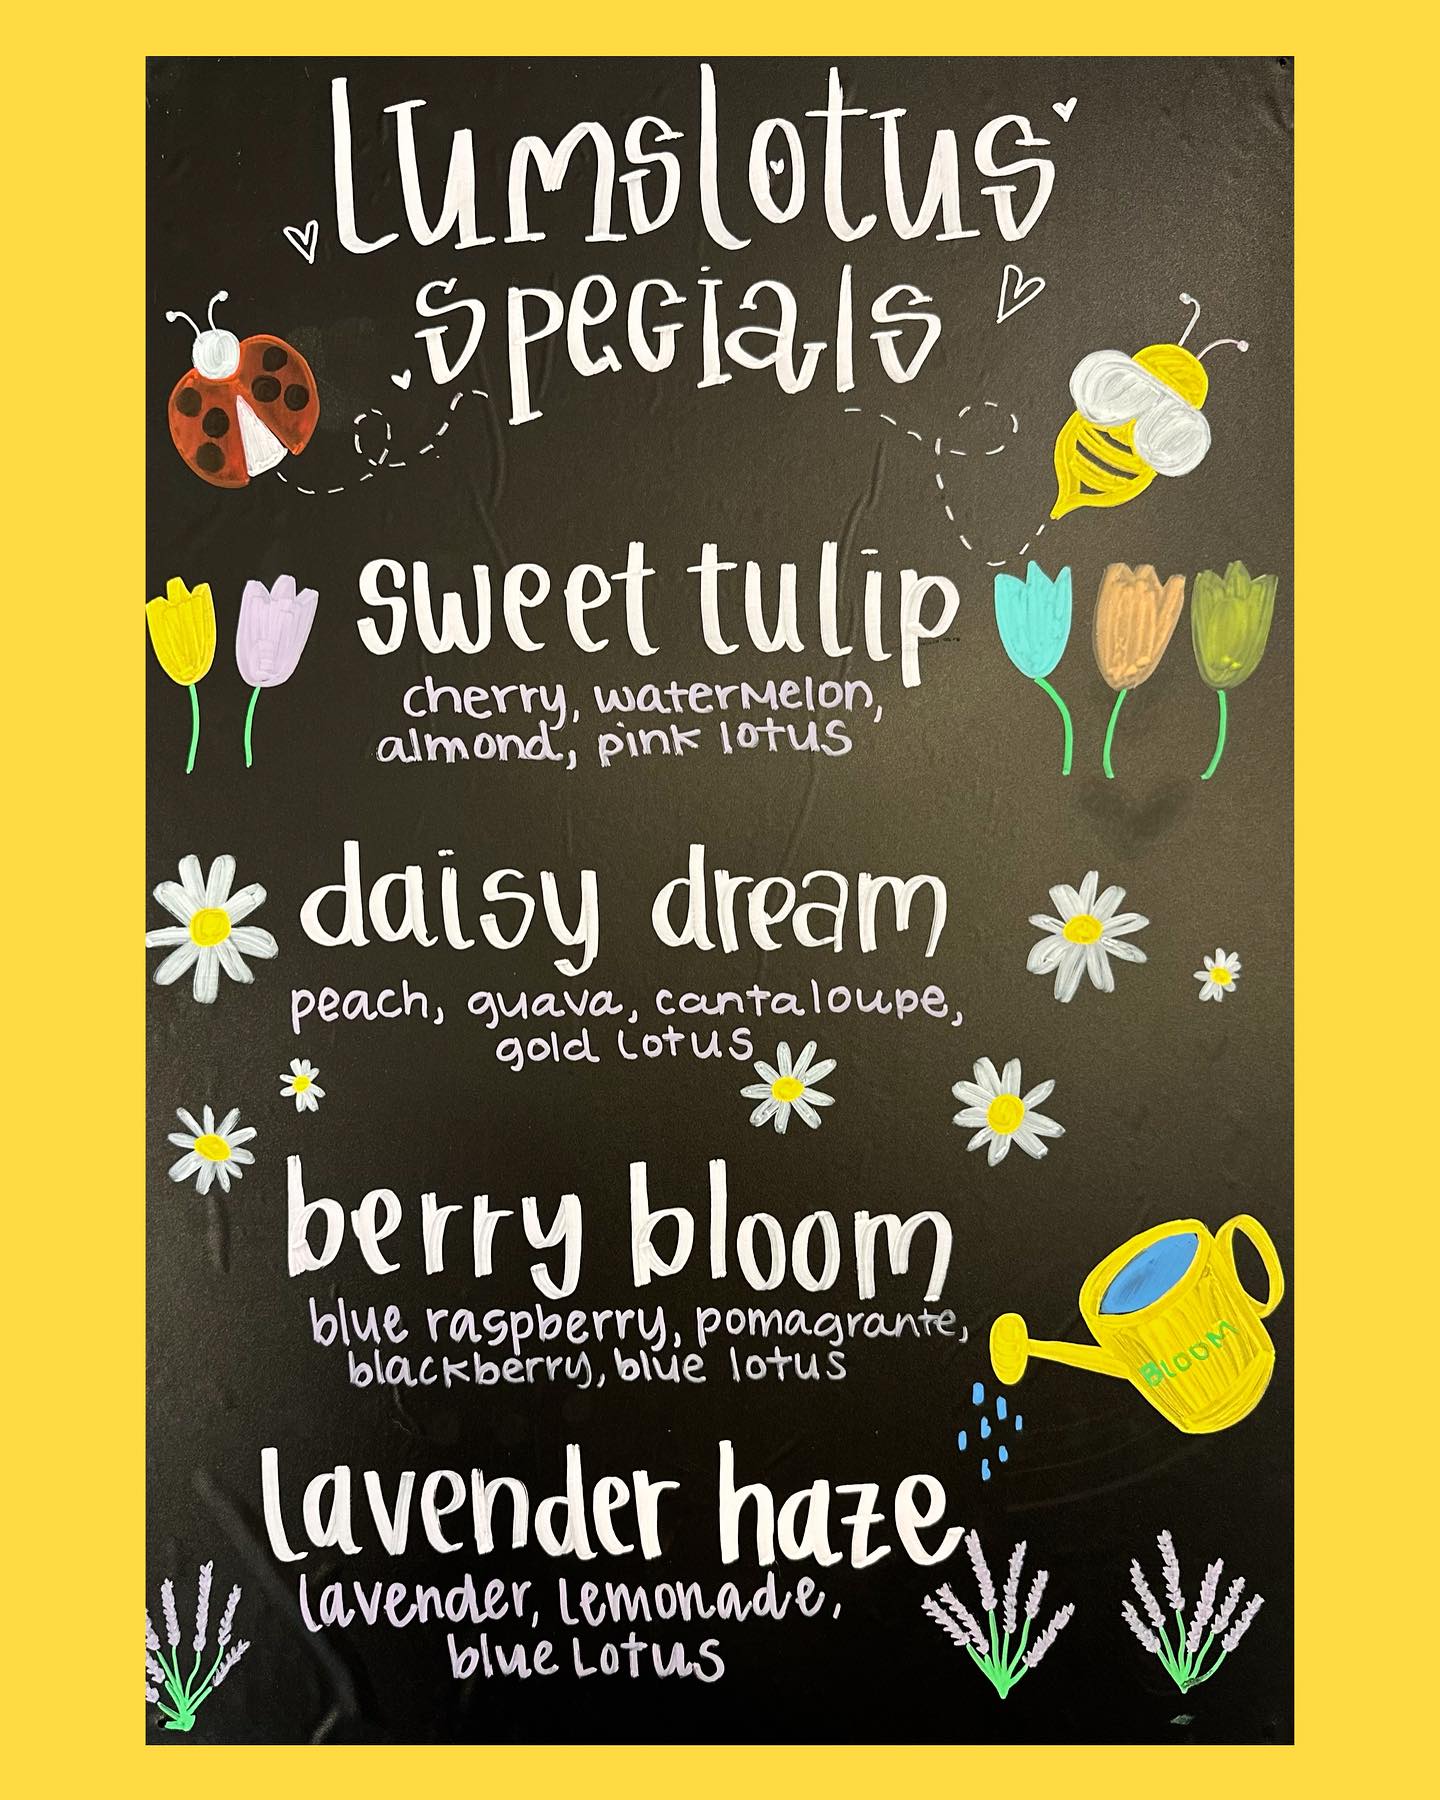 lumslotus
specials
sweet tulip
cherry, watermelon,
almond, pink lotus
daisy dream
peach, guava, cantaloupe,
gold lotus
berry bloom
blue raspberry, pomagrante,
blackberry, blue lotus
BLOOM
lavender haze
lavender, lemonade,
blue lotus